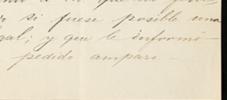 si fuese posible una
gal; y que le informé
pedido amparo.